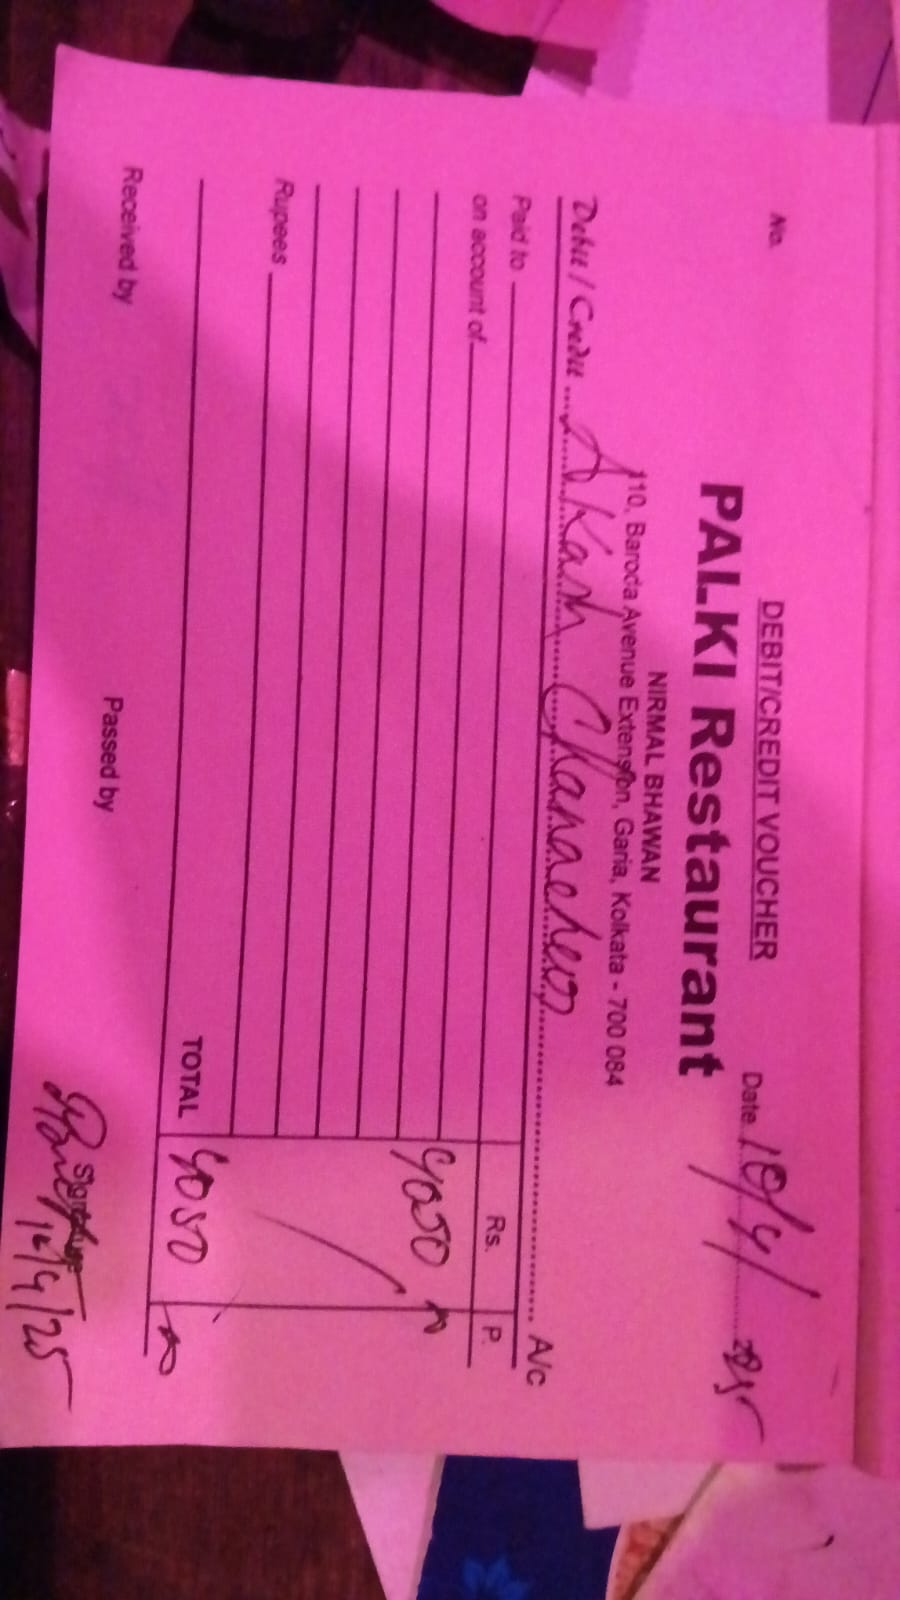 DEBIT/CREDIT VOUCHER
No. Date 10/4/ 2025
PALKI Restaurant
NIRMAL BHAWAN
110, Baroda Avenue Extension, Garia, Kolkata - 700 084
Debit / Credit Akash A/c
Paid to Rs. P.
on account of
Rupees
TOTAL
Received by Passed by Signature